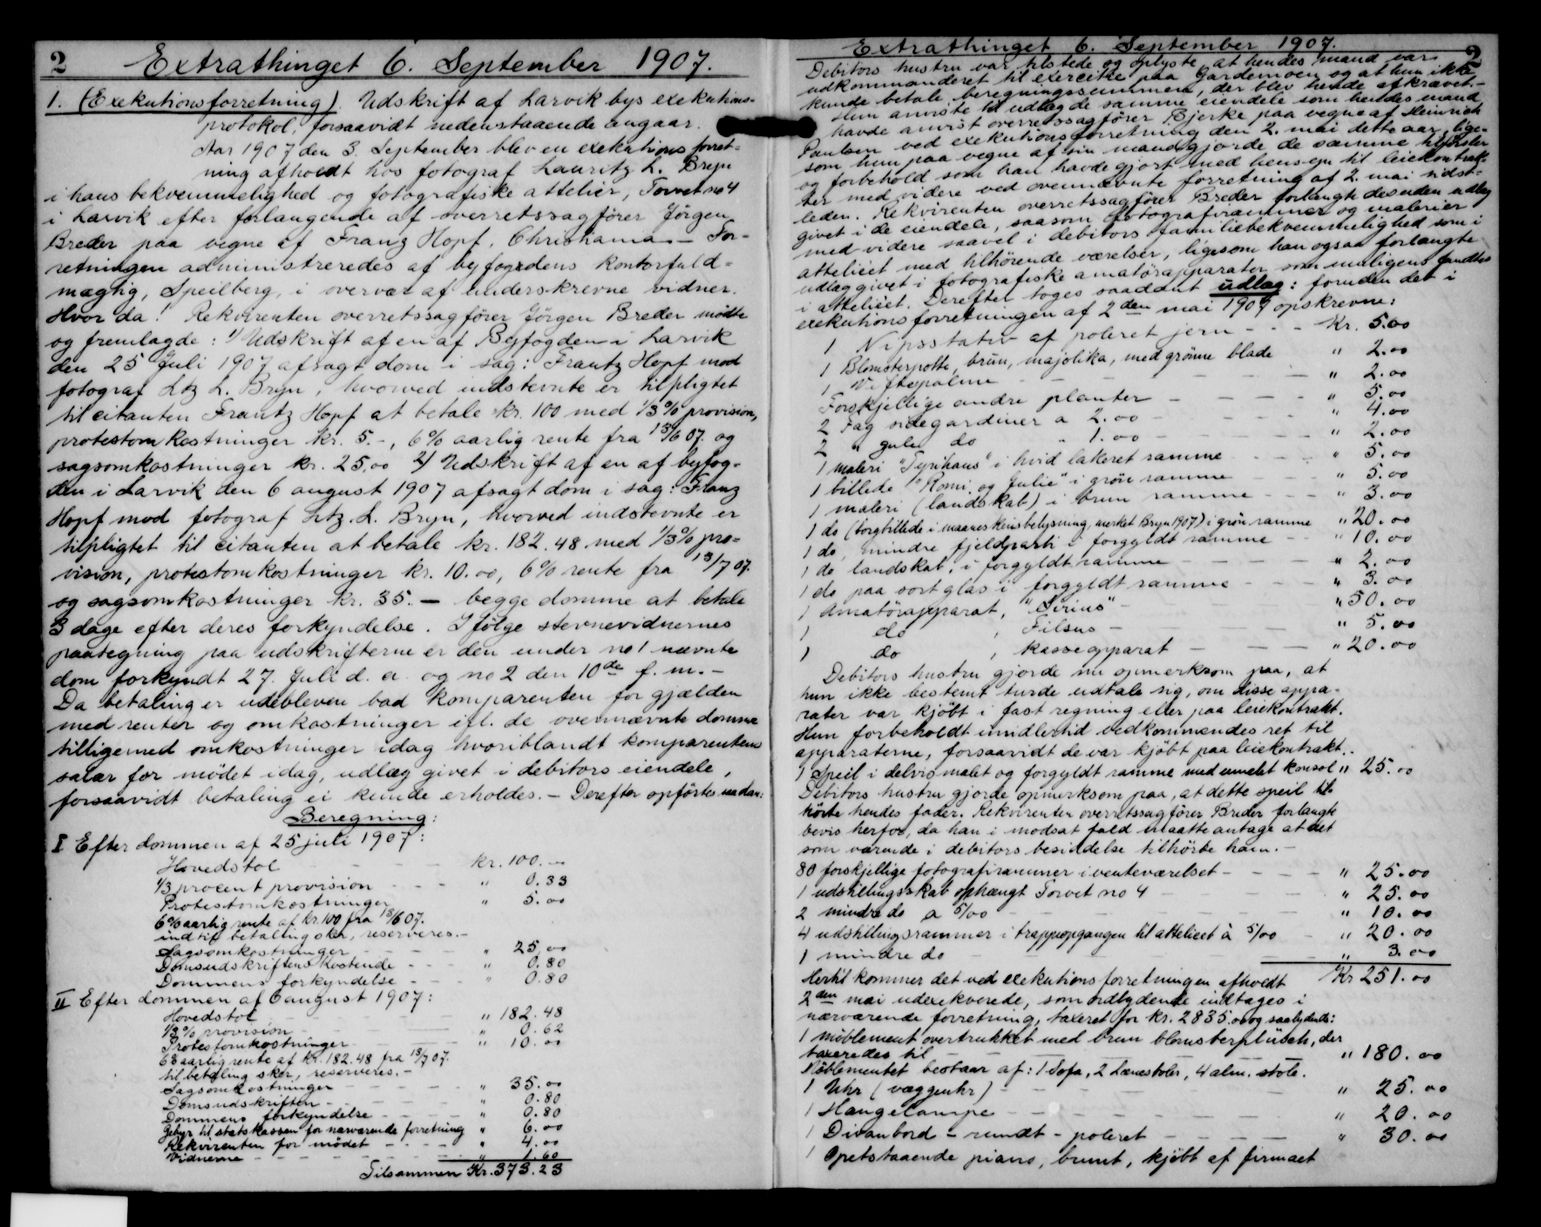 2 Extrathinget 6. September 1907.
1. (Exekutionsforretning). Udskrift af Larvik bys exekutions-
protokol, forsaavidt nedenstaaende angaar.
Aar 1907 den 3. September blev en exekutions forret-
ning afholdt hos fotograf Lauritz L. Bryn
i hans bekvemmelighed og fotografiske attelier, Torvet no 4
i Larvik efter forlangende af overretssagfører Jörgen
Breder paa vegne af Franz Hopf, Christiania – For-
retningen administreredes af byfogdens kontorfuld-
mægtig, Speilberg, i overvær af underskrevne vidner.
Hvor da: Rekvirenten overretssagfører Jörgen Breder mødte
og fremlagde: 1/ Udskrift af en af Byfogden i Larvik
den 25 Juli 1907 afsagt dom i sag: Frantz Hopf mod
fotograf Ltz L. Bryn, hvorved indstevnte er tilpligtet
til citanten Frantz Hopf at betale kr. 100 med 1/3 % provision,
protestomkostninger kr. 5.-, 6% aarlig rente fra 13/6 07. og
sagsomkostninger kr. 25,00 2/ Udskrift af en af byfog-
den i Larvik den 6 august 1907 afsagt dom i sag: Franz
Hopf mod fotograf Ltz. L. Bryn, hvorved indstevnte er
tilpligtet til citanten at betale kr. 182.48 med 1/3 % pro-
vision, protestomkostninger kr. 10.00, 6% rente fra 13/7 07.
og sagsomkostninger kr. 35. – begge domme at betale
3 dage efter deres forkyndelse. Ifølge stevnevidnernes
paategning paa udskrifterne er den under no 1 nævnte
dom forkyndt 27. Juli d. a. og no 2 den 10de f. m. –
Da betaling er udebleven bad komparenten for gjælden
med renter og omkostninger ifl. de ovennævnte domme
tilligemed omkostninger idag hvoriblandt komparentens
salær for mødet idag, udlæg givet i debitors eiendele,
forsaavidt betaling ei kunde erholdes. – Derefter opførtes saadan:
Beregning:
I Efter dommen af 25 juli 1907:
Hovedstol kr. 100.–
1/3 procent provision " 0.33
Protestomkostninger " 5.00
6% aarlig rente af kr. 100 fra 13/6 07.
indtil betaling sker, reserveres.–
Sagsomkostninger " 25.00
Domsudskriftens kostende " 0.80
Dommens forkyndelse " 0.80
II Efter dommen af 6 august 1907:
Hovedstol " 182.48
1/3 % provision " 0.62
Protestomkostninger " 10.00
6% aarlig rente af kr. 182.48 fra 13/7 07
til betaling sker, reserveres. –
Sagsomkostninger " 35.00
Domsudskriften " 0.80
Dommens forkyndelse " 0.80
Gebyr til statskassen for nærværende forretning " 6.00
Rekvirenten for mødet " 4.00
Vidnerne " 1.60
Tilsammen Kr. 373.23
Extrathinget 6. September 1907. 2
Debitors hustru var tilstede og oplyste, at hendes mand var
udkommanderet til exercitie paa Gardemoen og at hun ikke
kunde betale beregningssummen, der blev hende afkrævet.–
Hun anviste til udlæg de samme eiendele som hendes mand
havde anvist overretssagfører Bjerke paa vegne af Heinrich
Paulsen ved exekutionsforretning den 2. mai dette aar, lige-
som hun paa vegne af sin mand gjorde de samme
og forbehold som han havde gjort med hensyn til leiekontrak-
ter med videre ved ovennævnte forretning af 2. mai sidst-
leden. Rekvirenten overretssagfører Breder forlangte desuden udlæg
givet i de eiendele, saasom fotografirammer og malerier
med videre saavel i debitors familiebekvemmelighed som i
attelieet med tilhørende værelser, ligesom han ogsaa forlangte
udlæg givet i fotografiske amatørapparater, som muligens fandtes
i attelieet. Derefter toges saadant udlæg: foruden det i
exekutionsforretningen af 2den mai 1907 opskrevne:
1 Nipsstativ af poleret jern Kr. 5.00
1 Blomsterpotte, brun, majolika, med grønne blade " 2.00
1 Viftepalme " 2.00
Forskjellige andre planter " 5.00
2 Fag sidegardiner a 2.00 " 4.00
2 " gule do " 1.00 " 2.00
1 maleri "Tyrihans" i hvid lakeret ramme " 5.00
1 billede "Romi og Julie" i grøn ramme " 5.00
1 maleri (landskab) i brun ramme " 3.00
1 do (borgbillede i maaneskinsbelysning, merket Bryn 1907) i grøn ramme " 20.00
1 do, mindre fjeldparti i forgyldt ramme " 10.00
1 do landskab, i forgyldt ramme " 2.00
1 do paa sort glas i forgyldt ramme " 3.00
1 Amatørapparat, "Sirius" " 50.00
1 do , Filsus " 5.00
1 do , kasseapparat " 20.00
Debitors hustru gjorde nu opmerksom paa, at
hun ikke bestemt turde udtale sig, om disse appa-
rater var kjøbt i fast regning eller paa leiekontrakt.
Hun forbeholdt imidlertid vedkommendes ret til
apparaterne, forsaavidt de var kjøbt paa leiekontrakt.
1 Speil i delvis malet og forgyldt ramme med umalet konsol " 25.00
Debitors hustru gjorde opmerksom paa, at dette speil til-
hörte hendes fader. Rekvirenten overretssagfører Breder forlangte
bevis herfor, da han i modsat fald maatte antage at det
som værende i debitors besiddelse tilhörte ham. –
80 forskjellige fotografirammer i venteværelset " 25.00
1 udstillingsskab ophængt Torvet no 4 " 25.00
2 mindre do a 5/00 " 10.00
4 udstillingsrammer i trappeopgangen til attelieet à 5/00 " 20.00
1 mindre do " 3.00
Hertil kommer det ved exekutionsforretningen afholdt Kr 251.00
2den mai udexekverede, som ordlydende indtages i
nærværende forretning, taxeret for kr. 2835.00 og saalydende:
1 möblement overtrukket med brun blomsterplüsch, der
taxeredes til " 180.00
Möblementet bestaar af: 1 Sofa, 2 Lænestoler, 4 alm. stole.
1 Uhr (væggeuhr) " 25.00
1 Hængelampe " 20.00
1 Divanbord – rundt – poleret " 30.00
1 Opretstaaende piano, brunt, kjøbt af firmaet